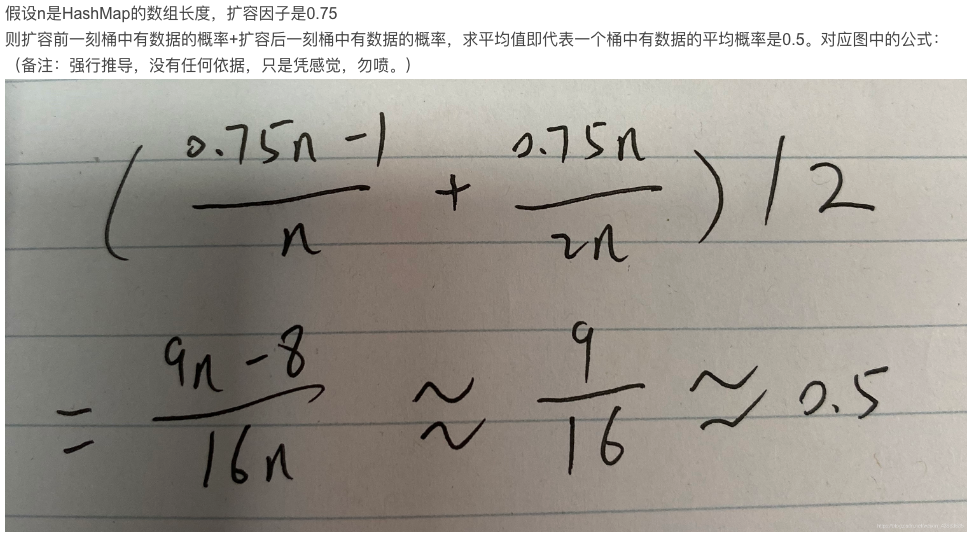 假设n是HashMap的数组长度，扩容因子是0.75
则扩容前一刻桶中有数据的概率+扩容后一刻桶中有数据的概率，求平均值即代表一个桶中有数据的平均概率是0.5。对应图中的公式：
（备注：强行推导，没有任何依据，只是凭感觉，勿喷。）
( (0.75n - 1)/n + 0.75n/2n ) / 2
= (9n - 8)/16n ≈ 9/16 ≈ 0.5